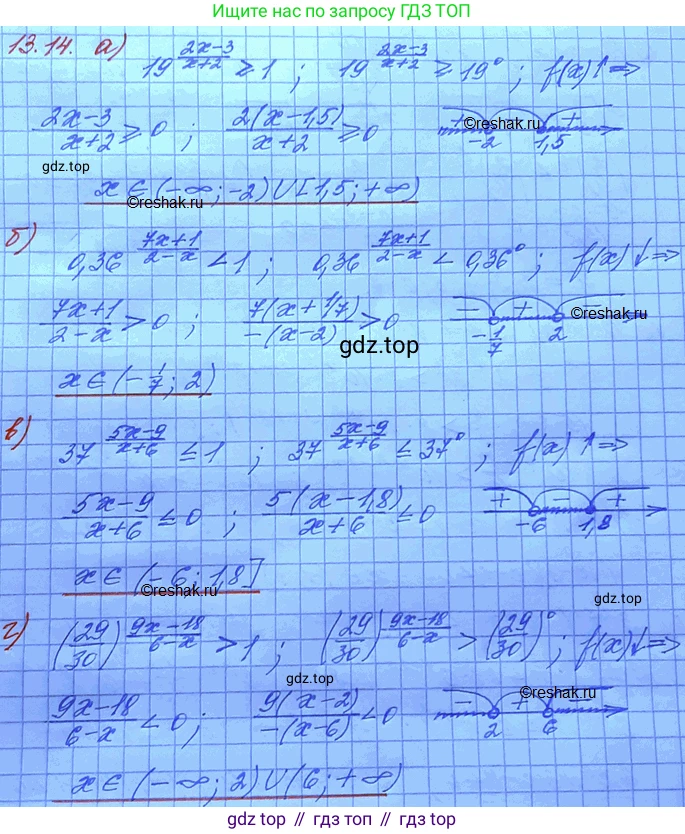 Ищите нас по запросу ГДЗ ТОП
13.14. а)
19^((2x-3)/(x+2)) ≥ 1 ; 19^((2x-3)/(x+2)) ≥ 19⁰ ; f(x)↑ ⇒
(2x-3)/(x+2) ≥ 0 ; 2(x-1,5)/(x+2) ≥ 0 + - + -2 1,5
©reshak.ru
gdz.top
x ∈ (-∞; -2) ∪ [1,5; +∞)
©reshak.ru
б)
0,36^((7x+1)/(2-x)) < 1 ; 0,36^((7x+1)/(2-x)) < 0,36⁰ ; f(x)↓ ⇒
(7x+1)/(2-x) > 0 ; 7(x+1/7)/(-(x-2)) > 0 - + - -1/7 2
©reshak.ru
gdz.top
x ∈ (-1/7; 2)
в)
37^((5x-9)/(x+6)) ≤ 1 ; 37^((5x-9)/(x+6)) ≤ 37⁰ ; f(x)↑ ⇒
(5x-9)/(x+6) ≤ 0 ; 5(x-1,8)/(x+6) ≤ 0 + - + -6 1,8
x ∈ (-6; 1,8]
©reshak.ru
gdz.top
г)
(29/30)^((9x-18)/(6-x)) > 1 ; (29/30)^((9x-18)/(6-x)) > (29/30)⁰ ; f(x)↓ ⇒
gdz.top
(9x-18)/(6-x) < 0 ; 9(x-2)/(-(x-6)) < 0 - + - 2 6
©reshak.ru
x ∈ (-∞; 2) ∪ (6; +∞)
gdz.top // гдз топ // gdz.top